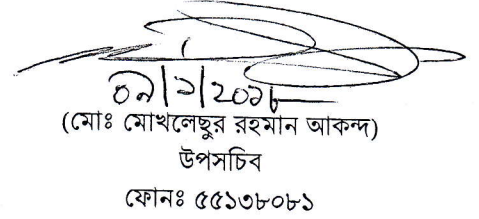 ০৯/১/২০১৮
(মোঃ মোখলেছুর রহমান আকন্দ)
উপসচিব
ফোনঃ ৫৫১৩৮০৮১